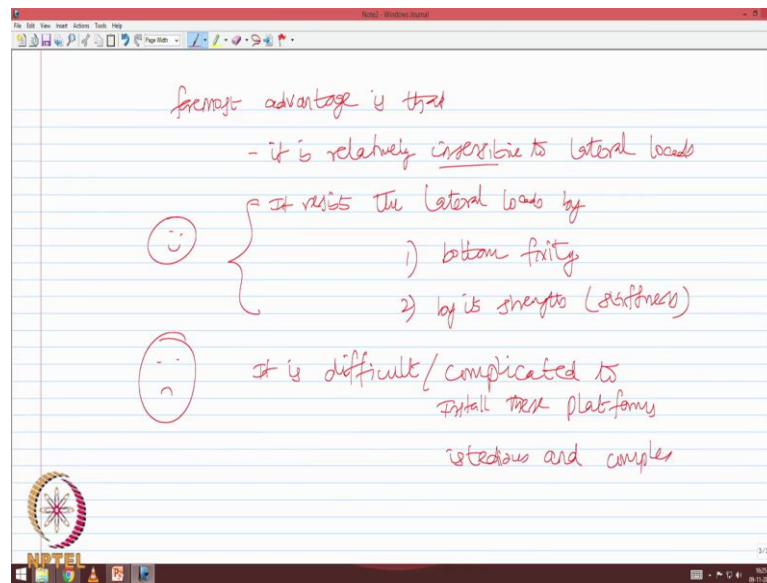 Note2 - Windows Journal
File Edit View Insert Actions Tools Help
Page Width
foremost advantage is that
- it is relatively insensible to lateral loads
It resist the lateral loads by
1) bottom fixity
2) by its strength (stiffness)
It is difficult/complicated to
Install these platforms
is tedious and complex
NPTEL
3/3